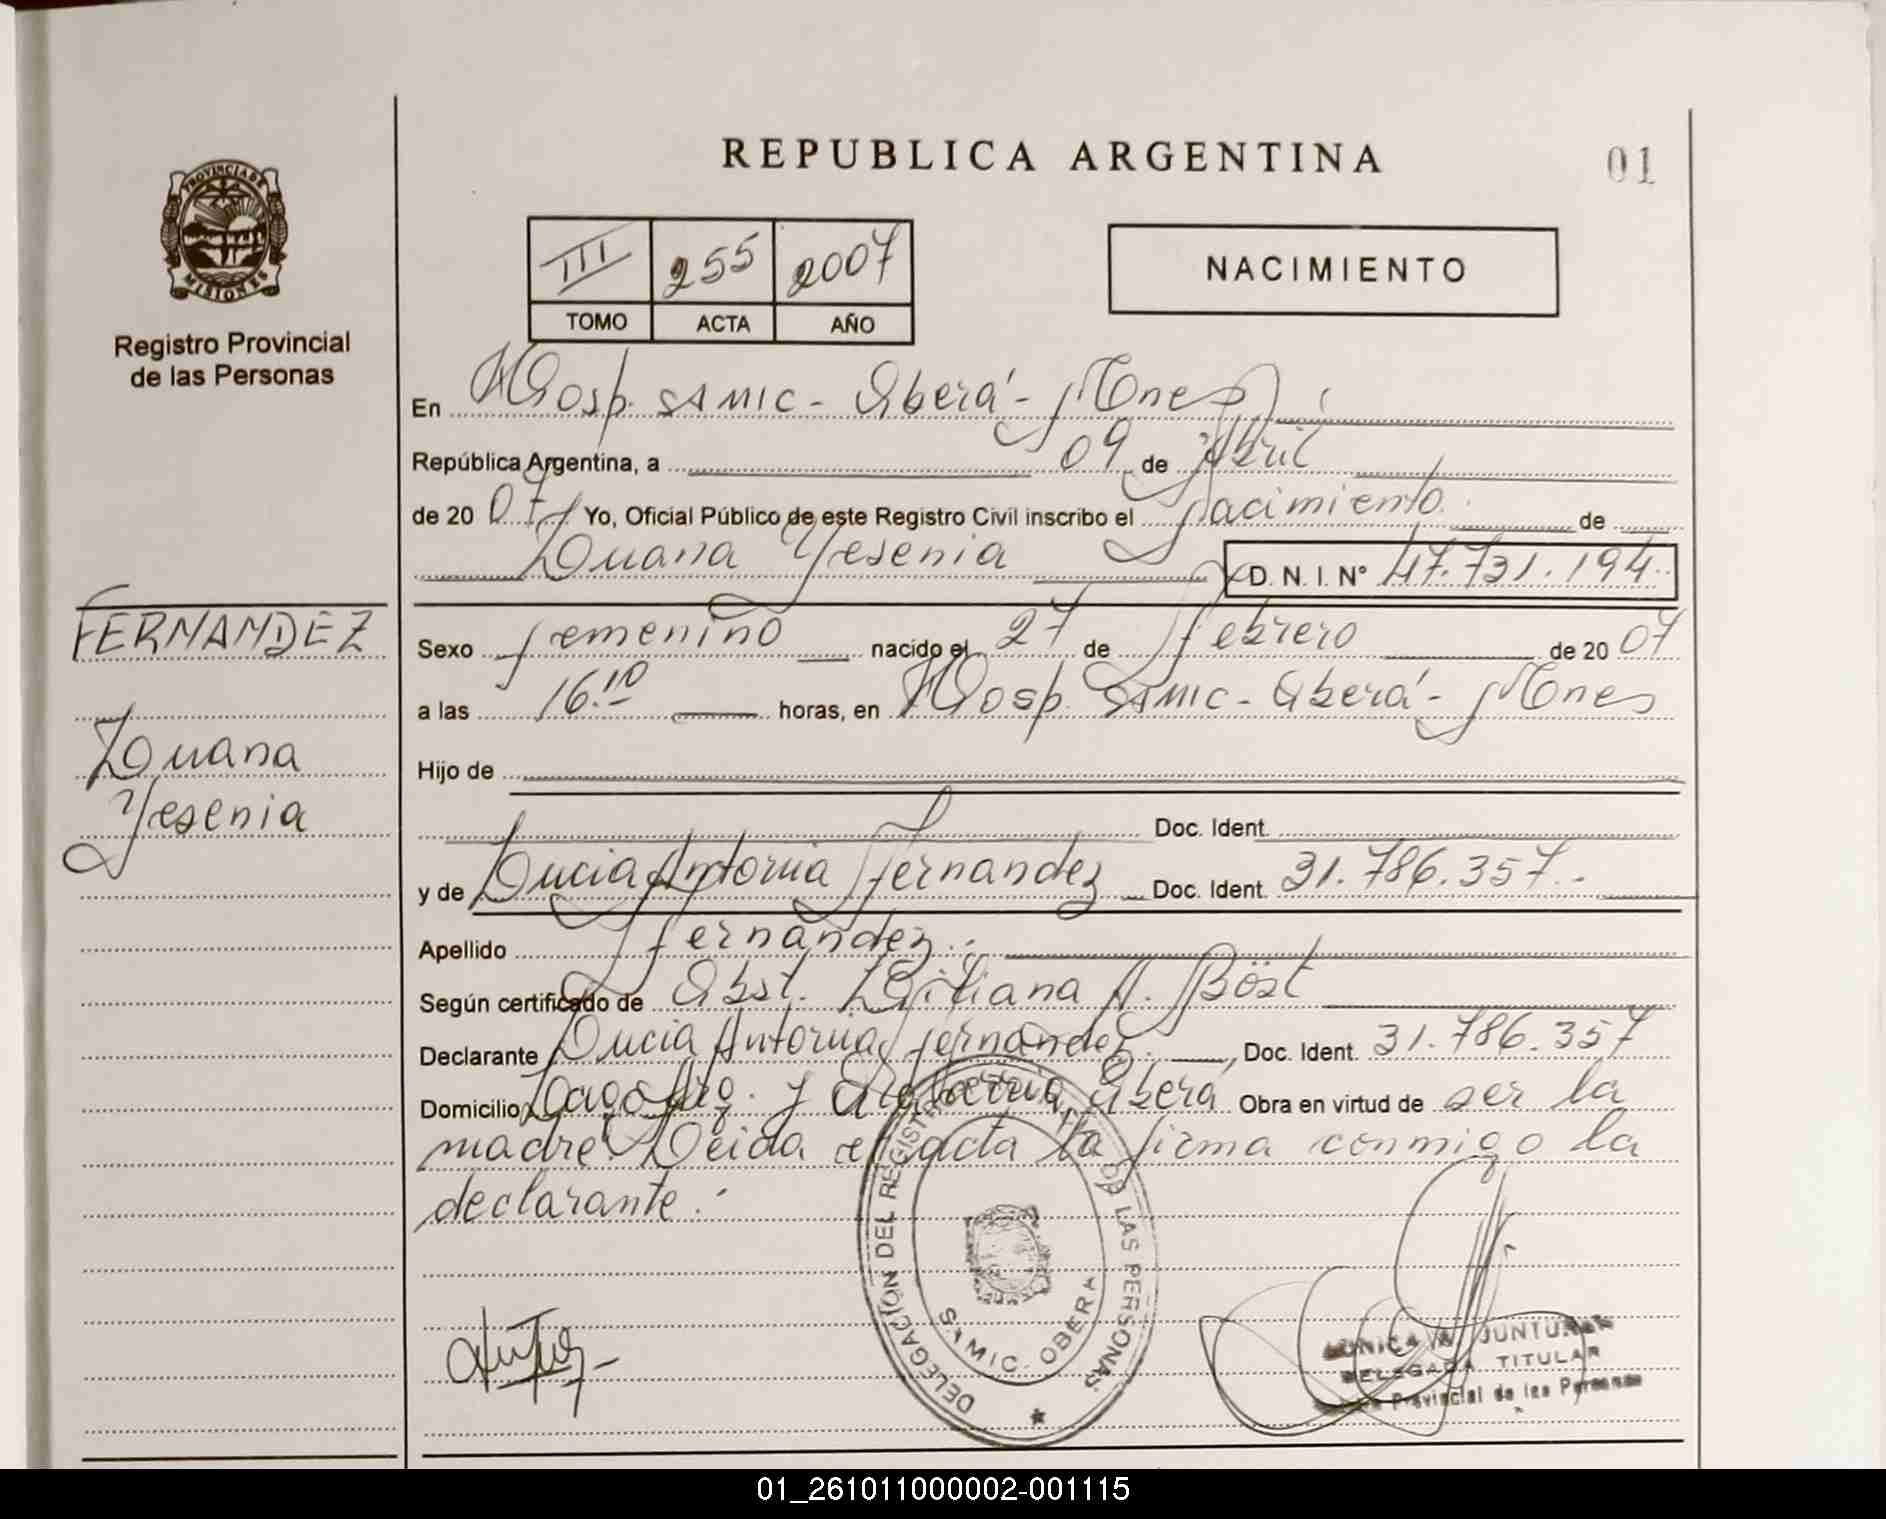 REPUBLICA ARGENTINA
01
PROVINCIA DE
MISIONES
Registro Provincial
de las Personas
III 255 2007
TOMO ACTA AÑO
NACIMIENTO
En Hosp. SAMIC - Oberá - Mnes
República Argentina, a 09 de Abril
de 20 07 Yo, Oficial Público de este Registro Civil inscribo el Nacimiento de
Luana Yesenia D. N. I. N° 47.731.194
FERNANDEZ
Luana
Yesenia
Sexo femenino nacido el 27 de febrero de 20 07
a las 16.10 horas, en Hosp. SAMIC - Oberá - Mnes
Hijo de
Doc. Ident.
y de Lucia Antonia Fernandez Doc. Ident. 31.786.357.-
Apellido Fernández.-
Según certificado de Obst. Liliana A. Böst
Declarante Lucia Antonia Fernández. , Doc. Ident. 31.786.357
Domicilio Lago Arg. y Oberá Obra en virtud de ser la
madre. Leida el acta la firma conmigo la
declarante.-
DELEGACIÓN DEL REGISTRO DE LAS PERSONAS
SAMIC - OBERA
MONICA JUNTURAN
DELEGADA TITULAR
Provincial de las Personas
01_261011000002-001115